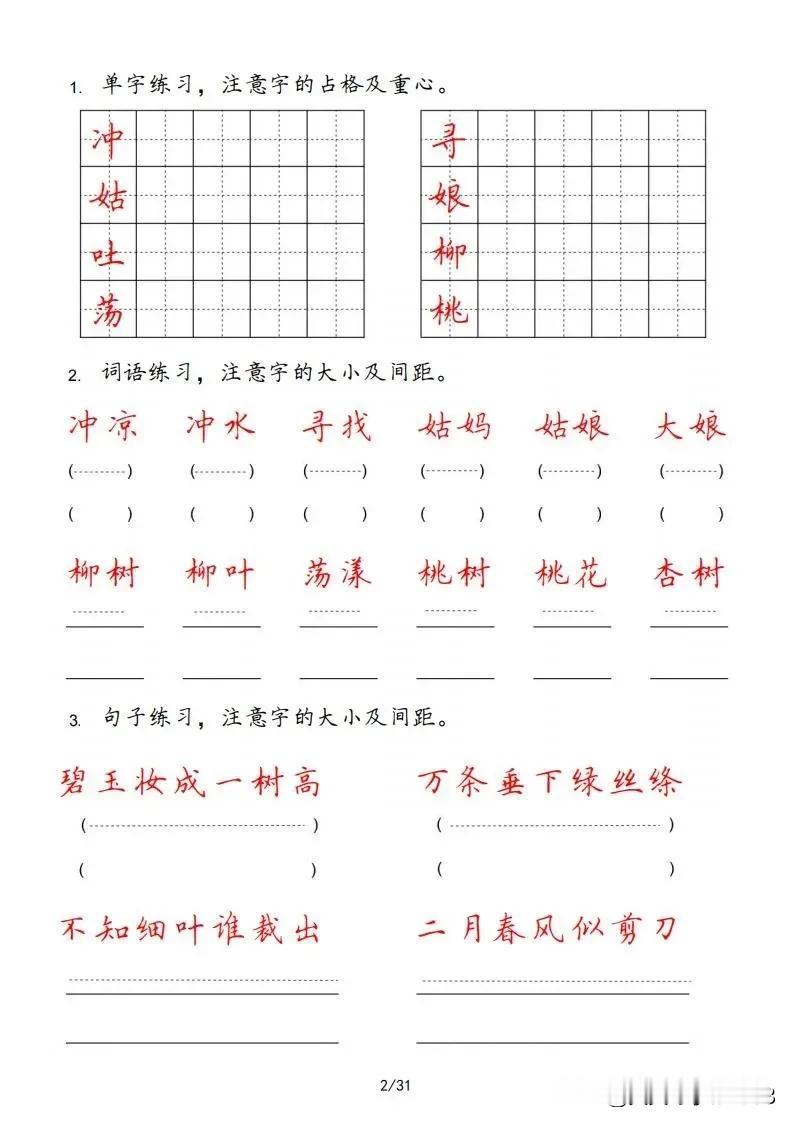 1. 单字练习，注意字的占格及重心。
冲 寻
姑 娘
吐 柳
荡 桃
2. 词语练习，注意字的大小及间距。
冲凉 冲水 寻找 姑妈 姑娘 大娘
( ) ( ) ( ) ( ) ( ) ( )
( ) ( ) ( ) ( ) ( ) ( )
柳树 柳叶 荡漾 桃树 桃花 杏树
3. 句子练习，注意字的大小及间距。
碧玉妆成一树高 万条垂下绿丝绦
( ) ( )
( ) ( )
不知细叶谁裁出 二月春风似剪刀
2/31